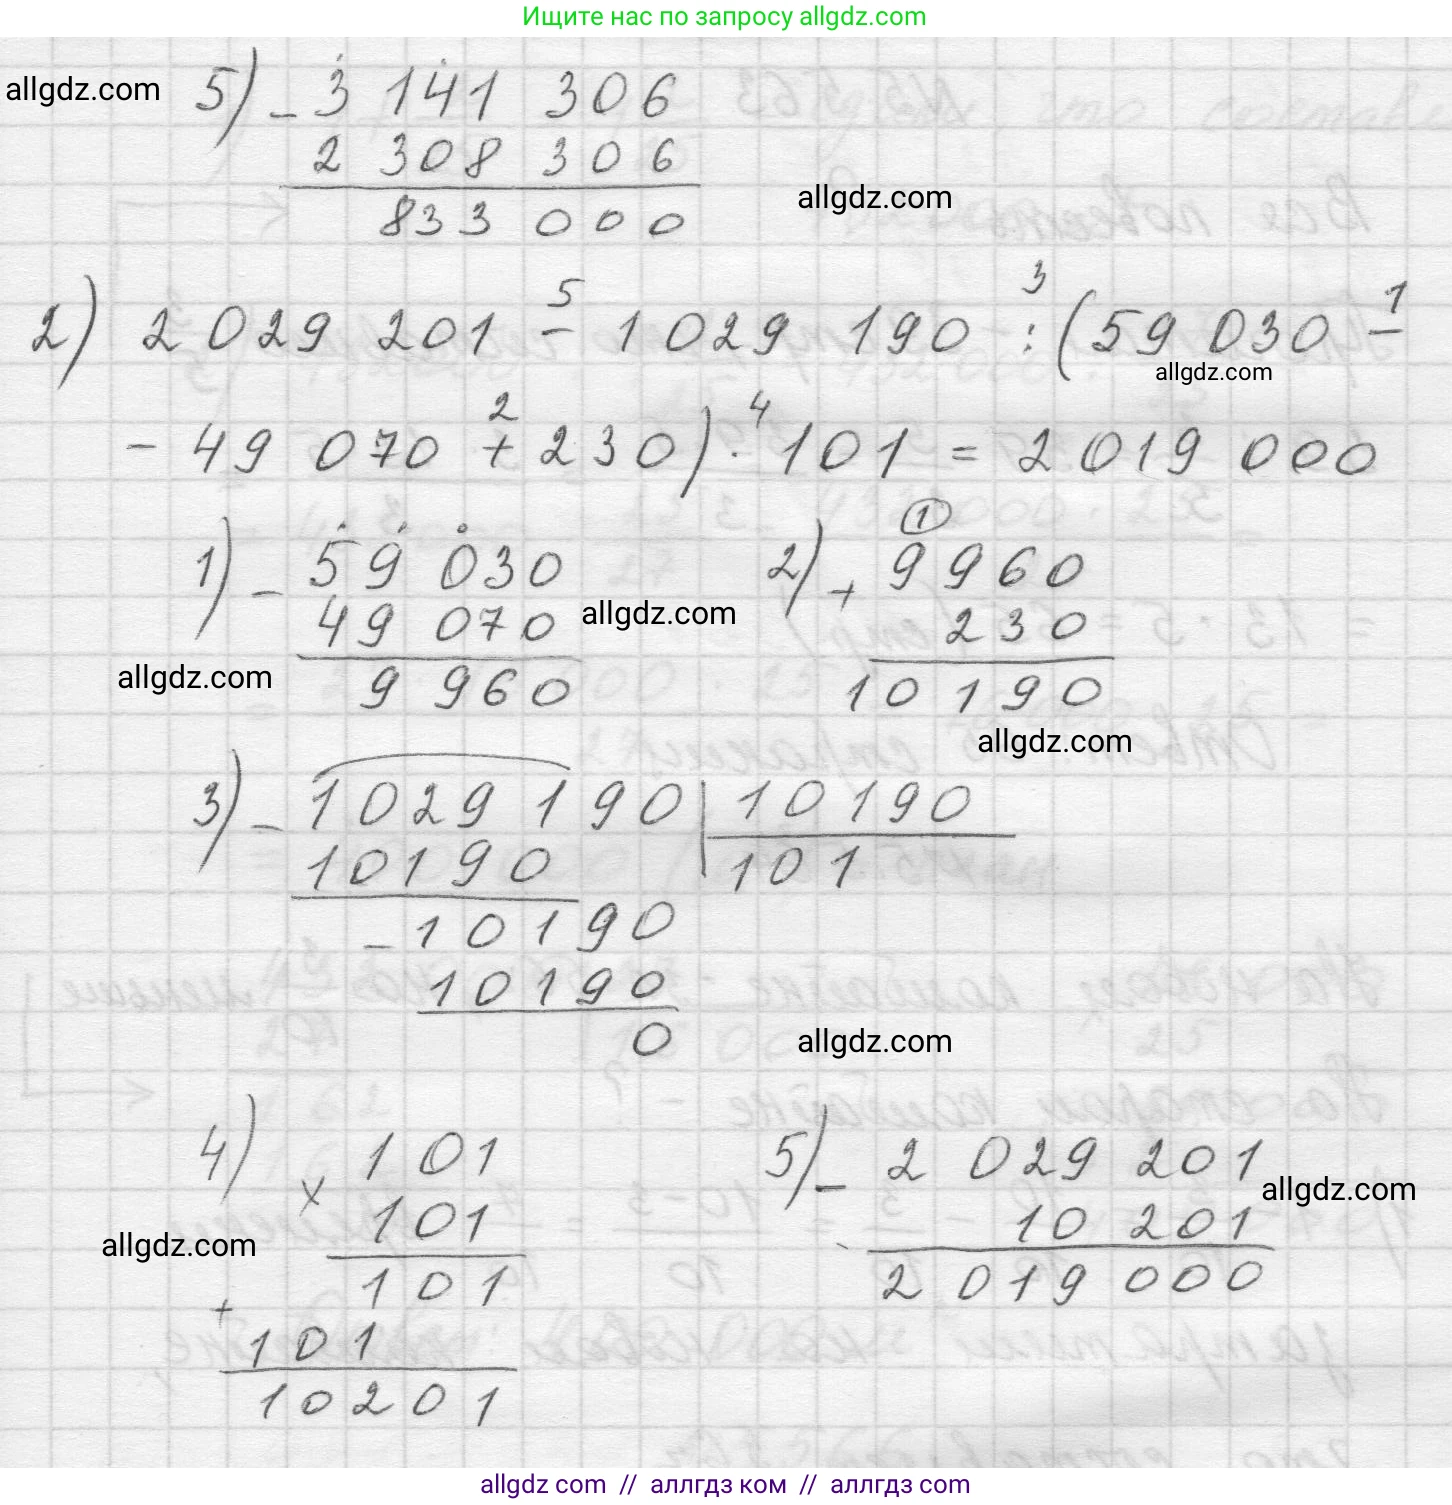 Ищите нас по запросу allgdz.com
allgdz.com
5) - 3 141 306
2 308 306
833 000
allgdz.com
5 3 1
2) 2 029 201 - 1 029 190 : (59 030 -
allgdz.com
2 4
- 49 070 + 230) · 101 = 2 019 000
1) - 59 030
49 070
9 960
allgdz.com
allgdz.com
1
2) + 9960
230
10190
allgdz.com
3) - 1029190 | 10190
10190 101
- 10190
10190
0
allgdz.com
4) × 101
101
101
+
101
10201
allgdz.com
5) - 2 029 201
10 201
2 019 000
allgdz.com
allgdz com // аллгдз ком // allgdz com